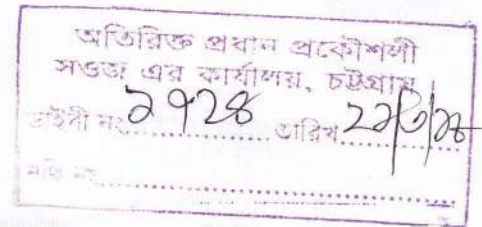 অতিরিক্ত প্রধান প্রকৌশলী
সওজ এর কার্যালয়, চট্টগ্রাম
ডাইরী নং ২৭২৪ তারিখ
নথি নং